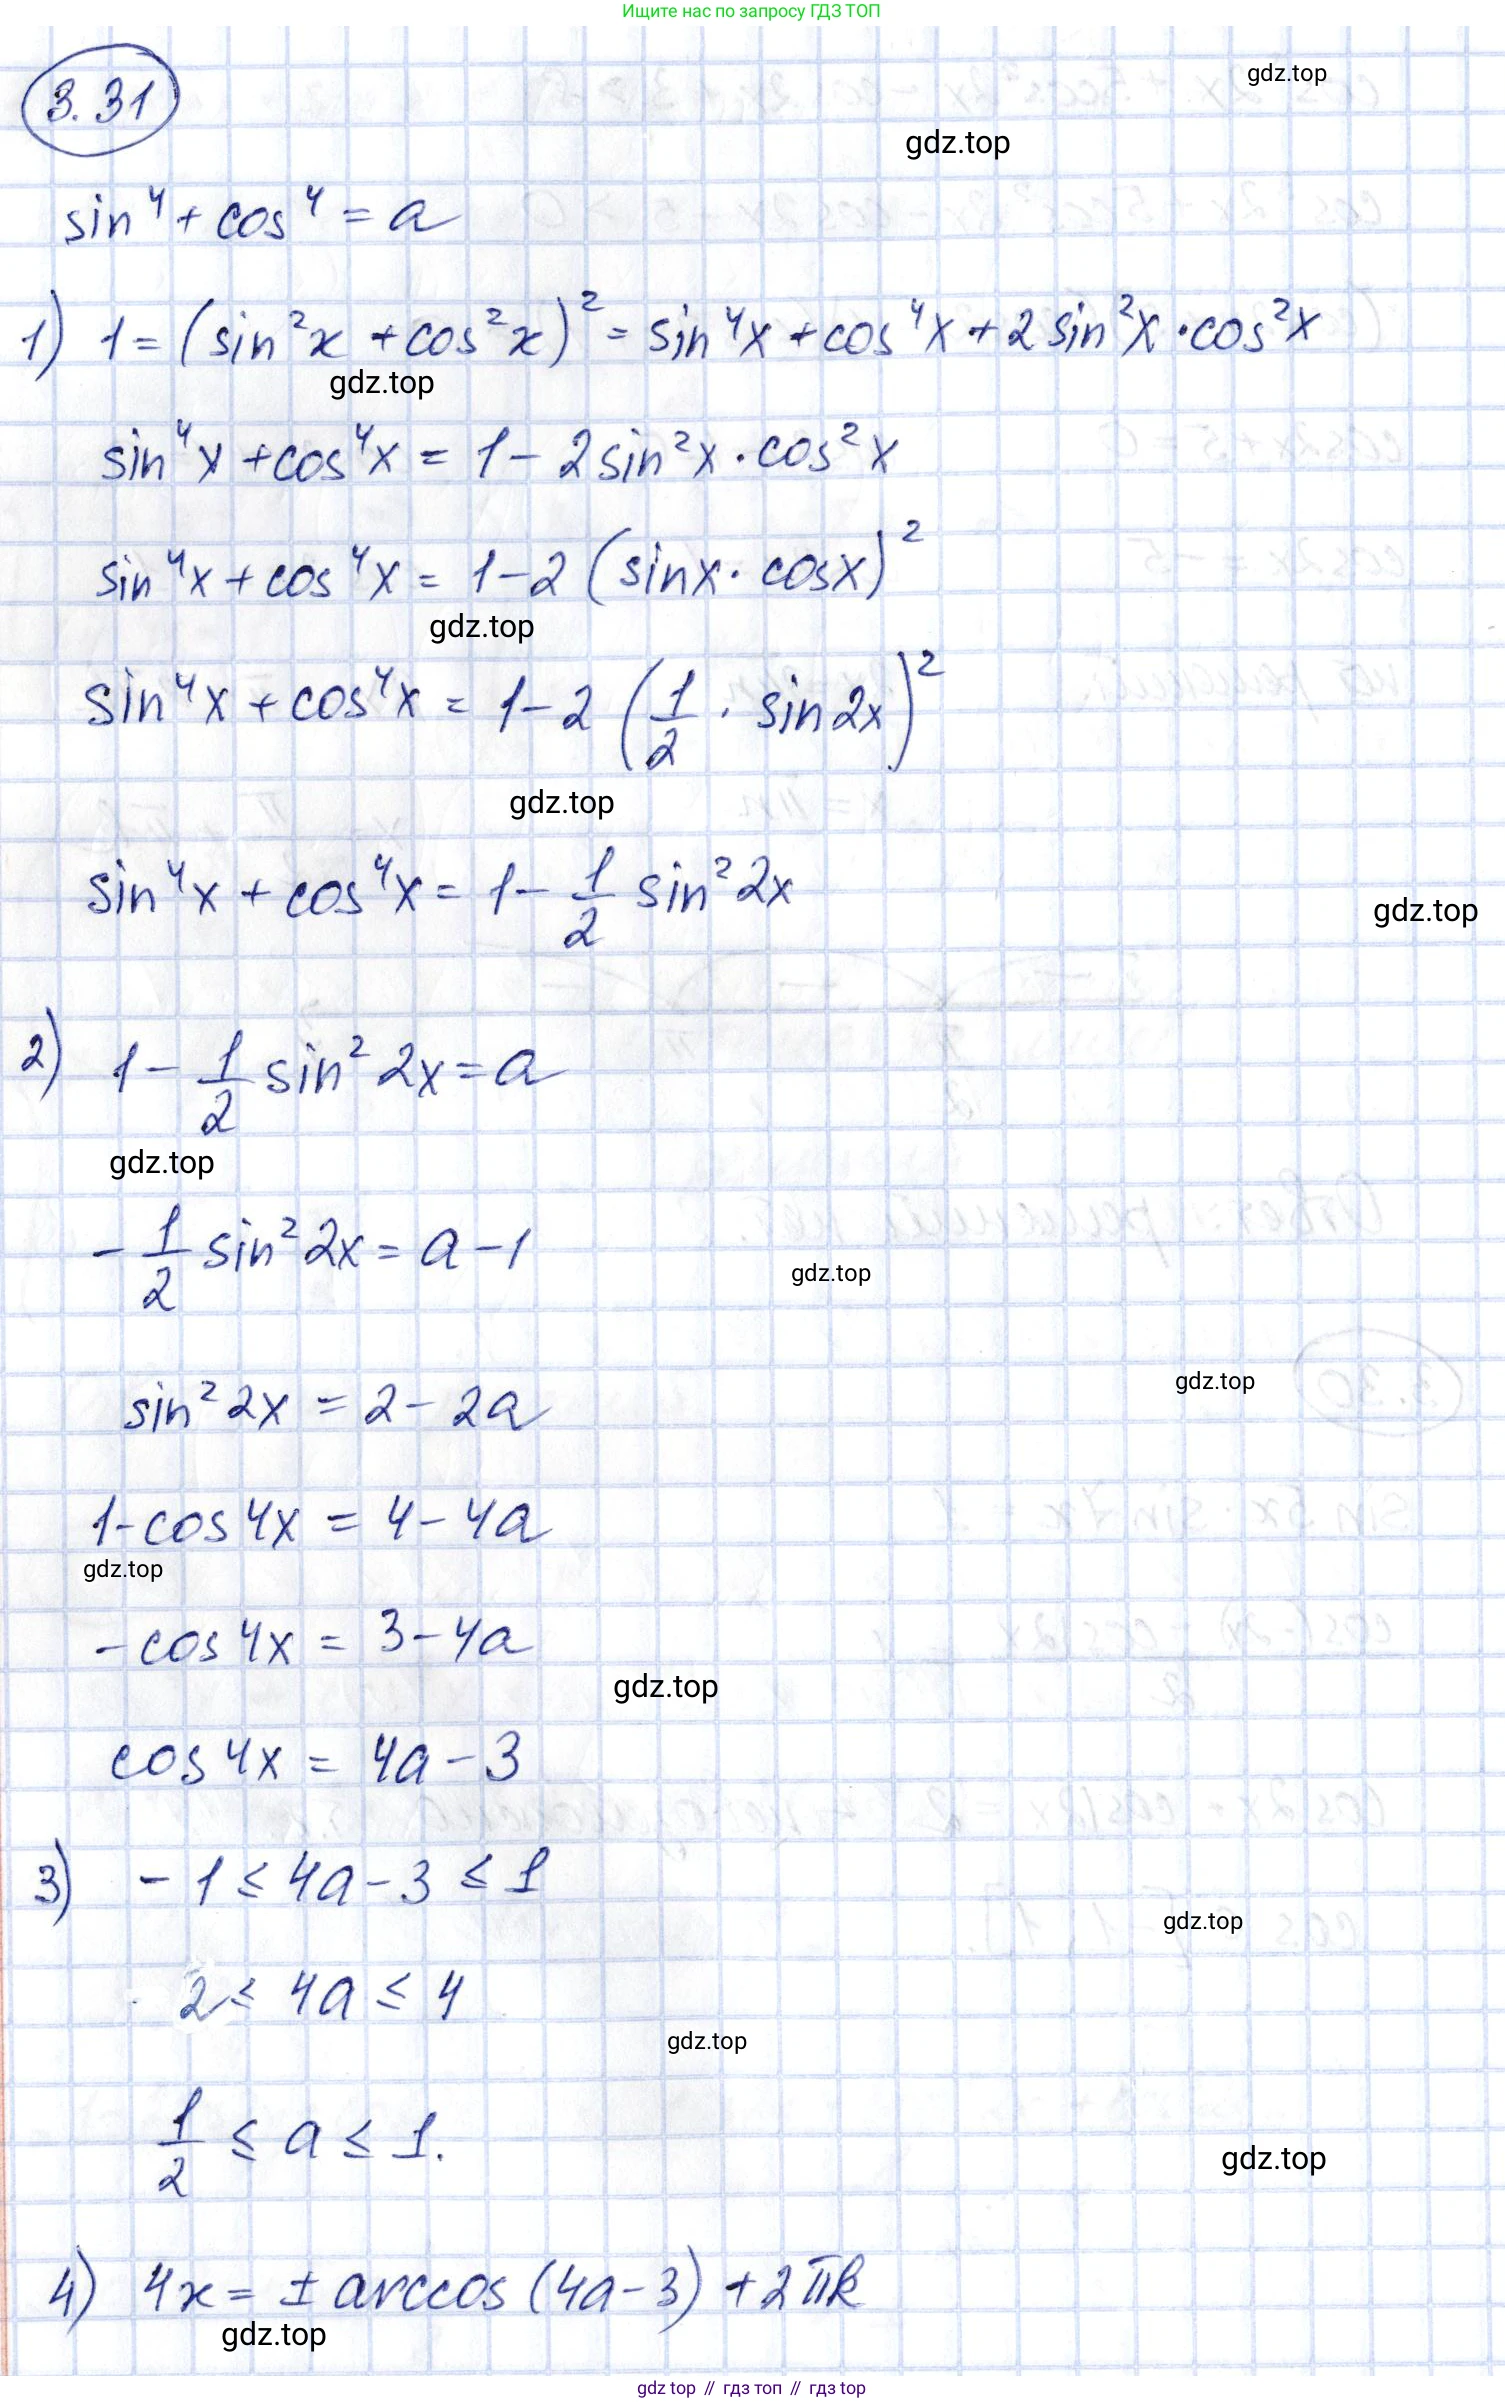 Ищите нас по запросу ГДЗ ТОП
gdz.top
3.31
gdz.top
sin⁴ + cos⁴ = a
1) 1 = (sin²x + cos²x)² = sin⁴x + cos⁴x + 2 sin²x · cos²x
gdz.top
sin⁴x + cos⁴x = 1 - 2 sin²x · cos²x
sin⁴x + cos⁴x = 1 - 2 (sinx · cosx)²
gdz.top
sin⁴x + cos⁴x = 1 - 2 (1/2 · sin 2x)²
gdz.top
sin⁴x + cos⁴x = 1 - 1/2 sin² 2x
gdz.top
2) 1 - 1/2 sin² 2x = a
gdz.top
- 1/2 sin² 2x = a - 1
gdz.top
gdz.top
sin² 2x = 2 - 2a
1 - cos 4x = 4 - 4a
gdz.top
- cos 4x = 3 - 4a
gdz.top
cos 4x = 4a - 3
3) - 1 ≤ 4a - 3 ≤ 1
gdz.top
2 ≤ 4a ≤ 4
gdz.top
1/2 ≤ a ≤ 1.
gdz.top
4) 4x = ± arccos (4a - 3) + 2πk
gdz.top
gdz top // гдз топ // гдз top